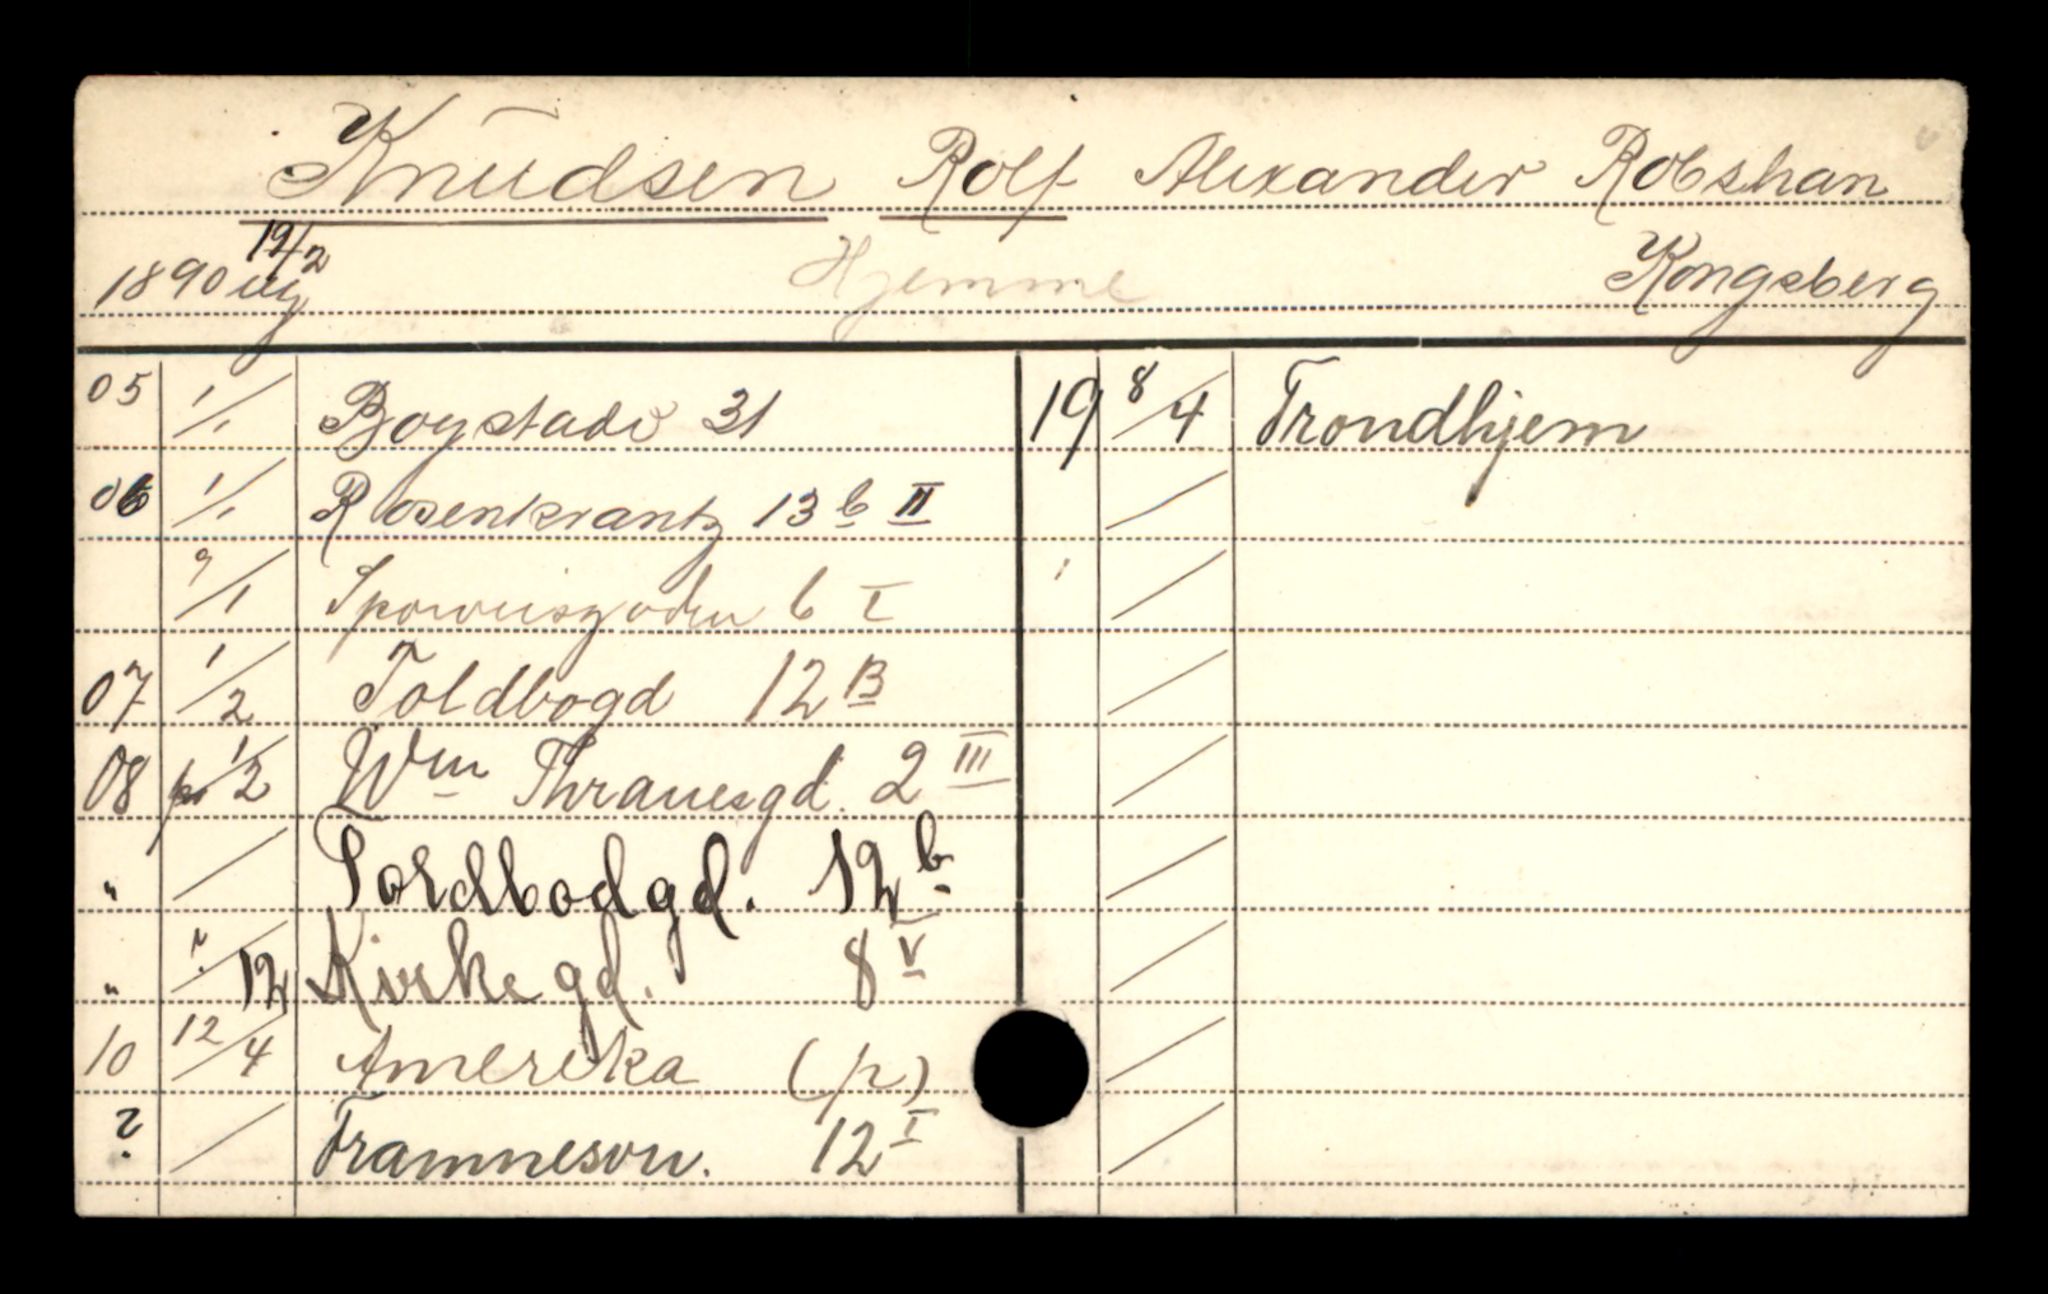 Knudsen Rolf Alexander Robshan
1890 19/2 ug Hjemme Kongsberg
05 1/1 Bogstadv 31
06 1/1 Rosenkrantz 13 b II
9/1 6 I
07 1/2 Toldbogd 12 B
08 1/2 Wm Thranesgd. 2 III
" / Toldbodgd. 12 b
" ?/12 Kirkegd. 8 V
10 12/4 Amerika (p)
? / Framnesvn. 12 I
19 8/4 Trondhjem